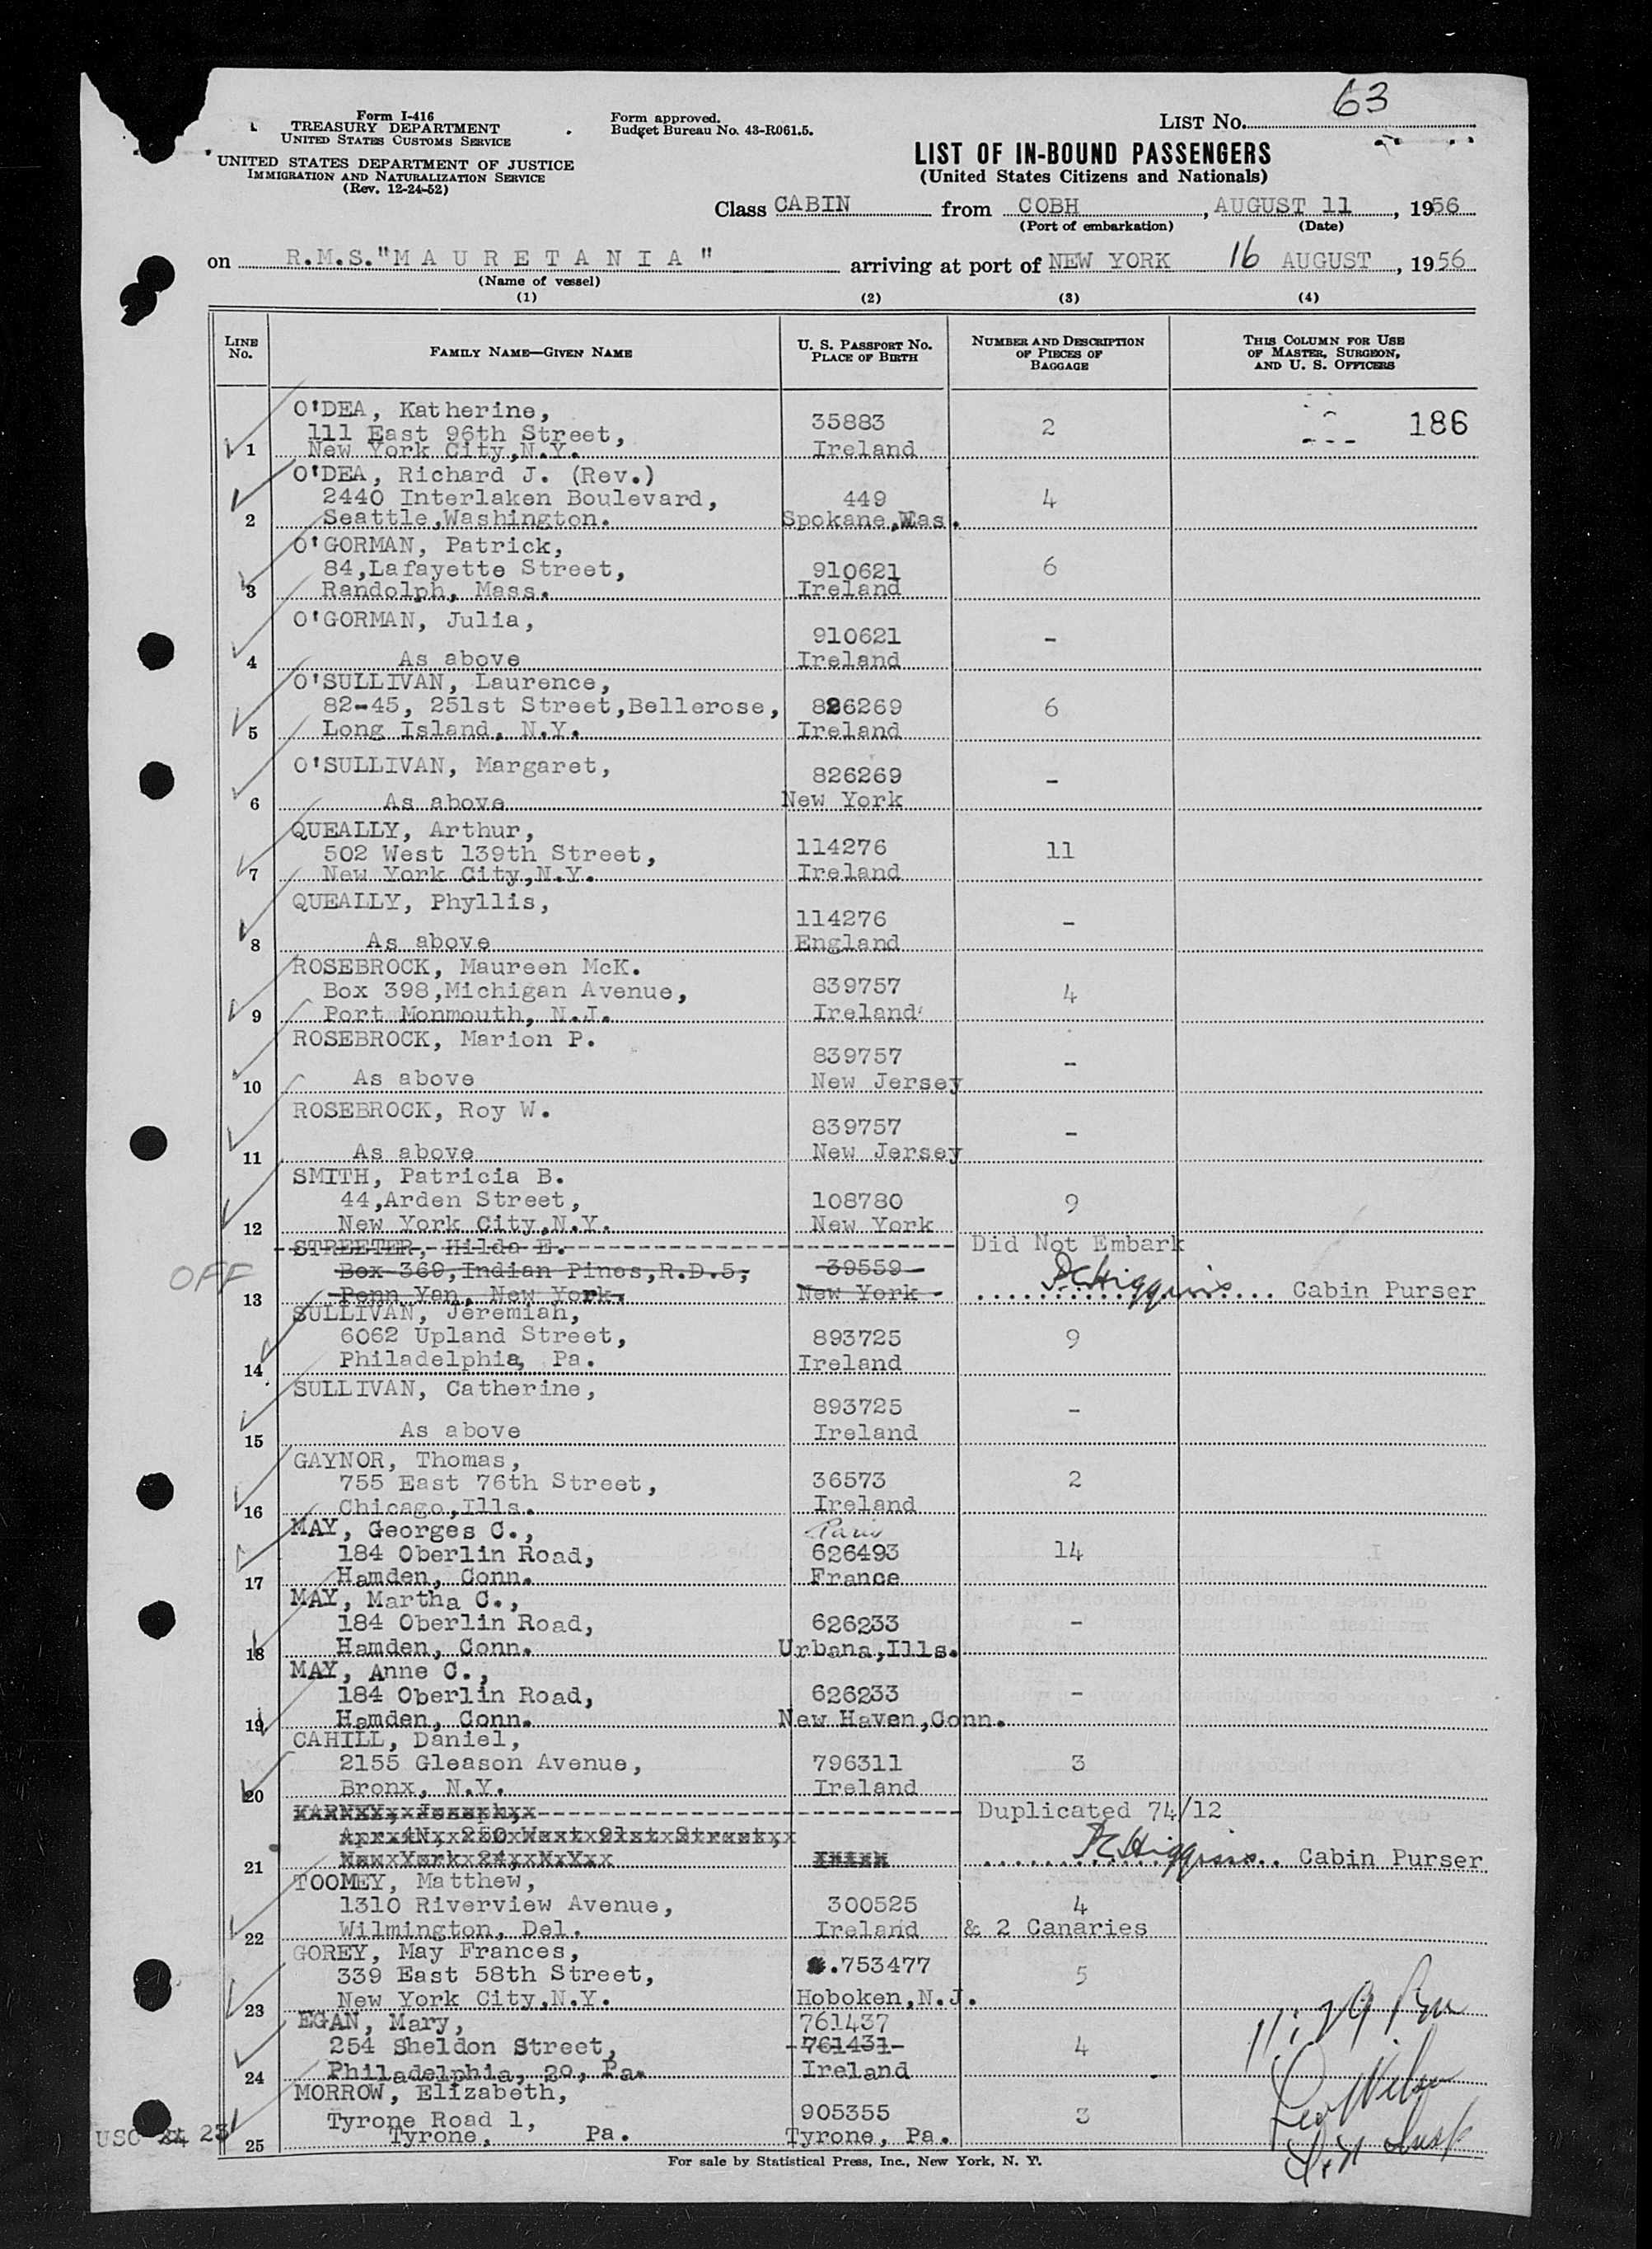 63
Form I-416
TREASURY DEPARTMENT
UNITED STATES CUSTOMS SERVICE
UNITED STATES DEPARTMENT OF JUSTICE
IMMIGRATION AND NATURALIZATION SERVICE
(Rev. 12-24-52)
Form approved.
Budget Bureau No. 43-R061.5.
LIST No.
LIST OF IN-BOUND PASSENGERS
(United States Citizens and Nationals)
Class CABIN from COBH, AUGUST 11, 1956
(Port of embarkation) (Date)
on R.M.S."M A U R E T A N I A" arriving at port of NEW YORK 16 AUGUST, 1956
(Name of vessel)
(1) (2) (3) (4)
LINE No. FAMILY NAME—GIVEN NAME U. S. PASSPORT No. PLACE OF BIRTH NUMBER AND DESCRIPTION OF PIECES OF BAGGAGE THIS COLUMN FOR USE OF MASTER, SURGEON, AND U. S. OFFICERS
O'DEA, Katherine,
111 East 96th Street, 35883 2 186
1 New York City,N.Y. Ireland
O'DEA, Richard J. (Rev.)
2440 Interlaken Boulevard, 449 4
2 Seattle,Washington. Spokane,Was.
O'GORMAN, Patrick,
84,Lafayette Street, 910621 6
3 Randolph, Mass. Ireland
O'GORMAN, Julia,
910621 -
4 As above Ireland
O'SULLIVAN, Laurence,
82-45, 251st Street,Bellerose, 826269 6
5 Long Island, N.Y. Ireland
O'SULLIVAN, Margaret,
826269 -
6 As above New York
QUEALLY, Arthur,
502 West 139th Street, 114276 11
7 New York City,N.Y. Ireland
QUEALLY, Phyllis,
114276 -
8 As above England
ROSEBROCK, Maureen McK.
Box 398,Michigan Avenue, 839757 4
9 Port Monmouth, N.J. Ireland
ROSEBROCK, Marion P.
839757 -
10 As above New Jersey
ROSEBROCK, Roy W.
839757 -
11 As above New Jersey
SMITH, Patricia B.
44,Arden Street, 108780 9
12 New York City,N.Y. New York
STREETER, Hilda E. Did Not Embark
OFF Box 369,Indian Pines,R.D.5, 39559
13 Penn Yan, New York, New York P.C. Higgins Cabin Purser
SULLIVAN, Jeremiah,
6062 Upland Street, 893725 9
14 Philadelphia, Pa. Ireland
SULLIVAN, Catherine,
893725 -
15 As above Ireland
GAYNOR, Thomas,
755 East 76th Street, 36573 2
16 Chicago,Ills. Ireland
MAY, Georges C., Paris
184 Oberlin Road, 626493 14
17 Hamden, Conn. France
MAY, Martha C.,
184 Oberlin Road, 626233 -
18 Hamden, Conn. Urbana,Ills.
MAY, Anne C.,
184 Oberlin Road, 626233 -
19 Hamden, Conn. New Haven,Conn.
CAHILL, Daniel,
2155 Gleason Avenue, 796311 3
20 Bronx, N.Y. Ireland
Duplicated 74/12
21 P.C. Higgins Cabin Purser
TOOMEY, Matthew,
1310 Riverview Avenue, 300525 4
22 Wilmington, Del. Ireland & 2 Canaries
GOREY, May Frances,
339 East 58th Street, .753477 5
23 New York City,N.Y. Hoboken,N.J.
EGAN, Mary, 761437
254 Sheldon Street, 761431 4
24 Philadelphia, 20, Pa. Ireland
MORROW, Elizabeth,
Tyrone Road 1, 905355 3
USC 23
25 Tyrone, Pa. Tyrone, Pa.
For sale by Statistical Press, Inc., New York, N. Y.